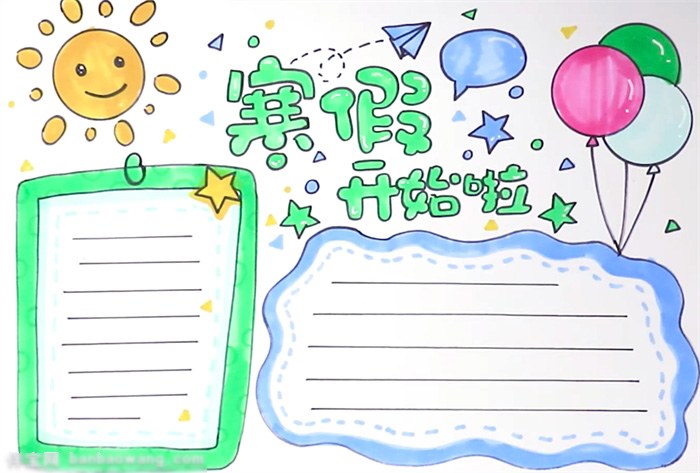 寒假
开始啦
banbaowang.com